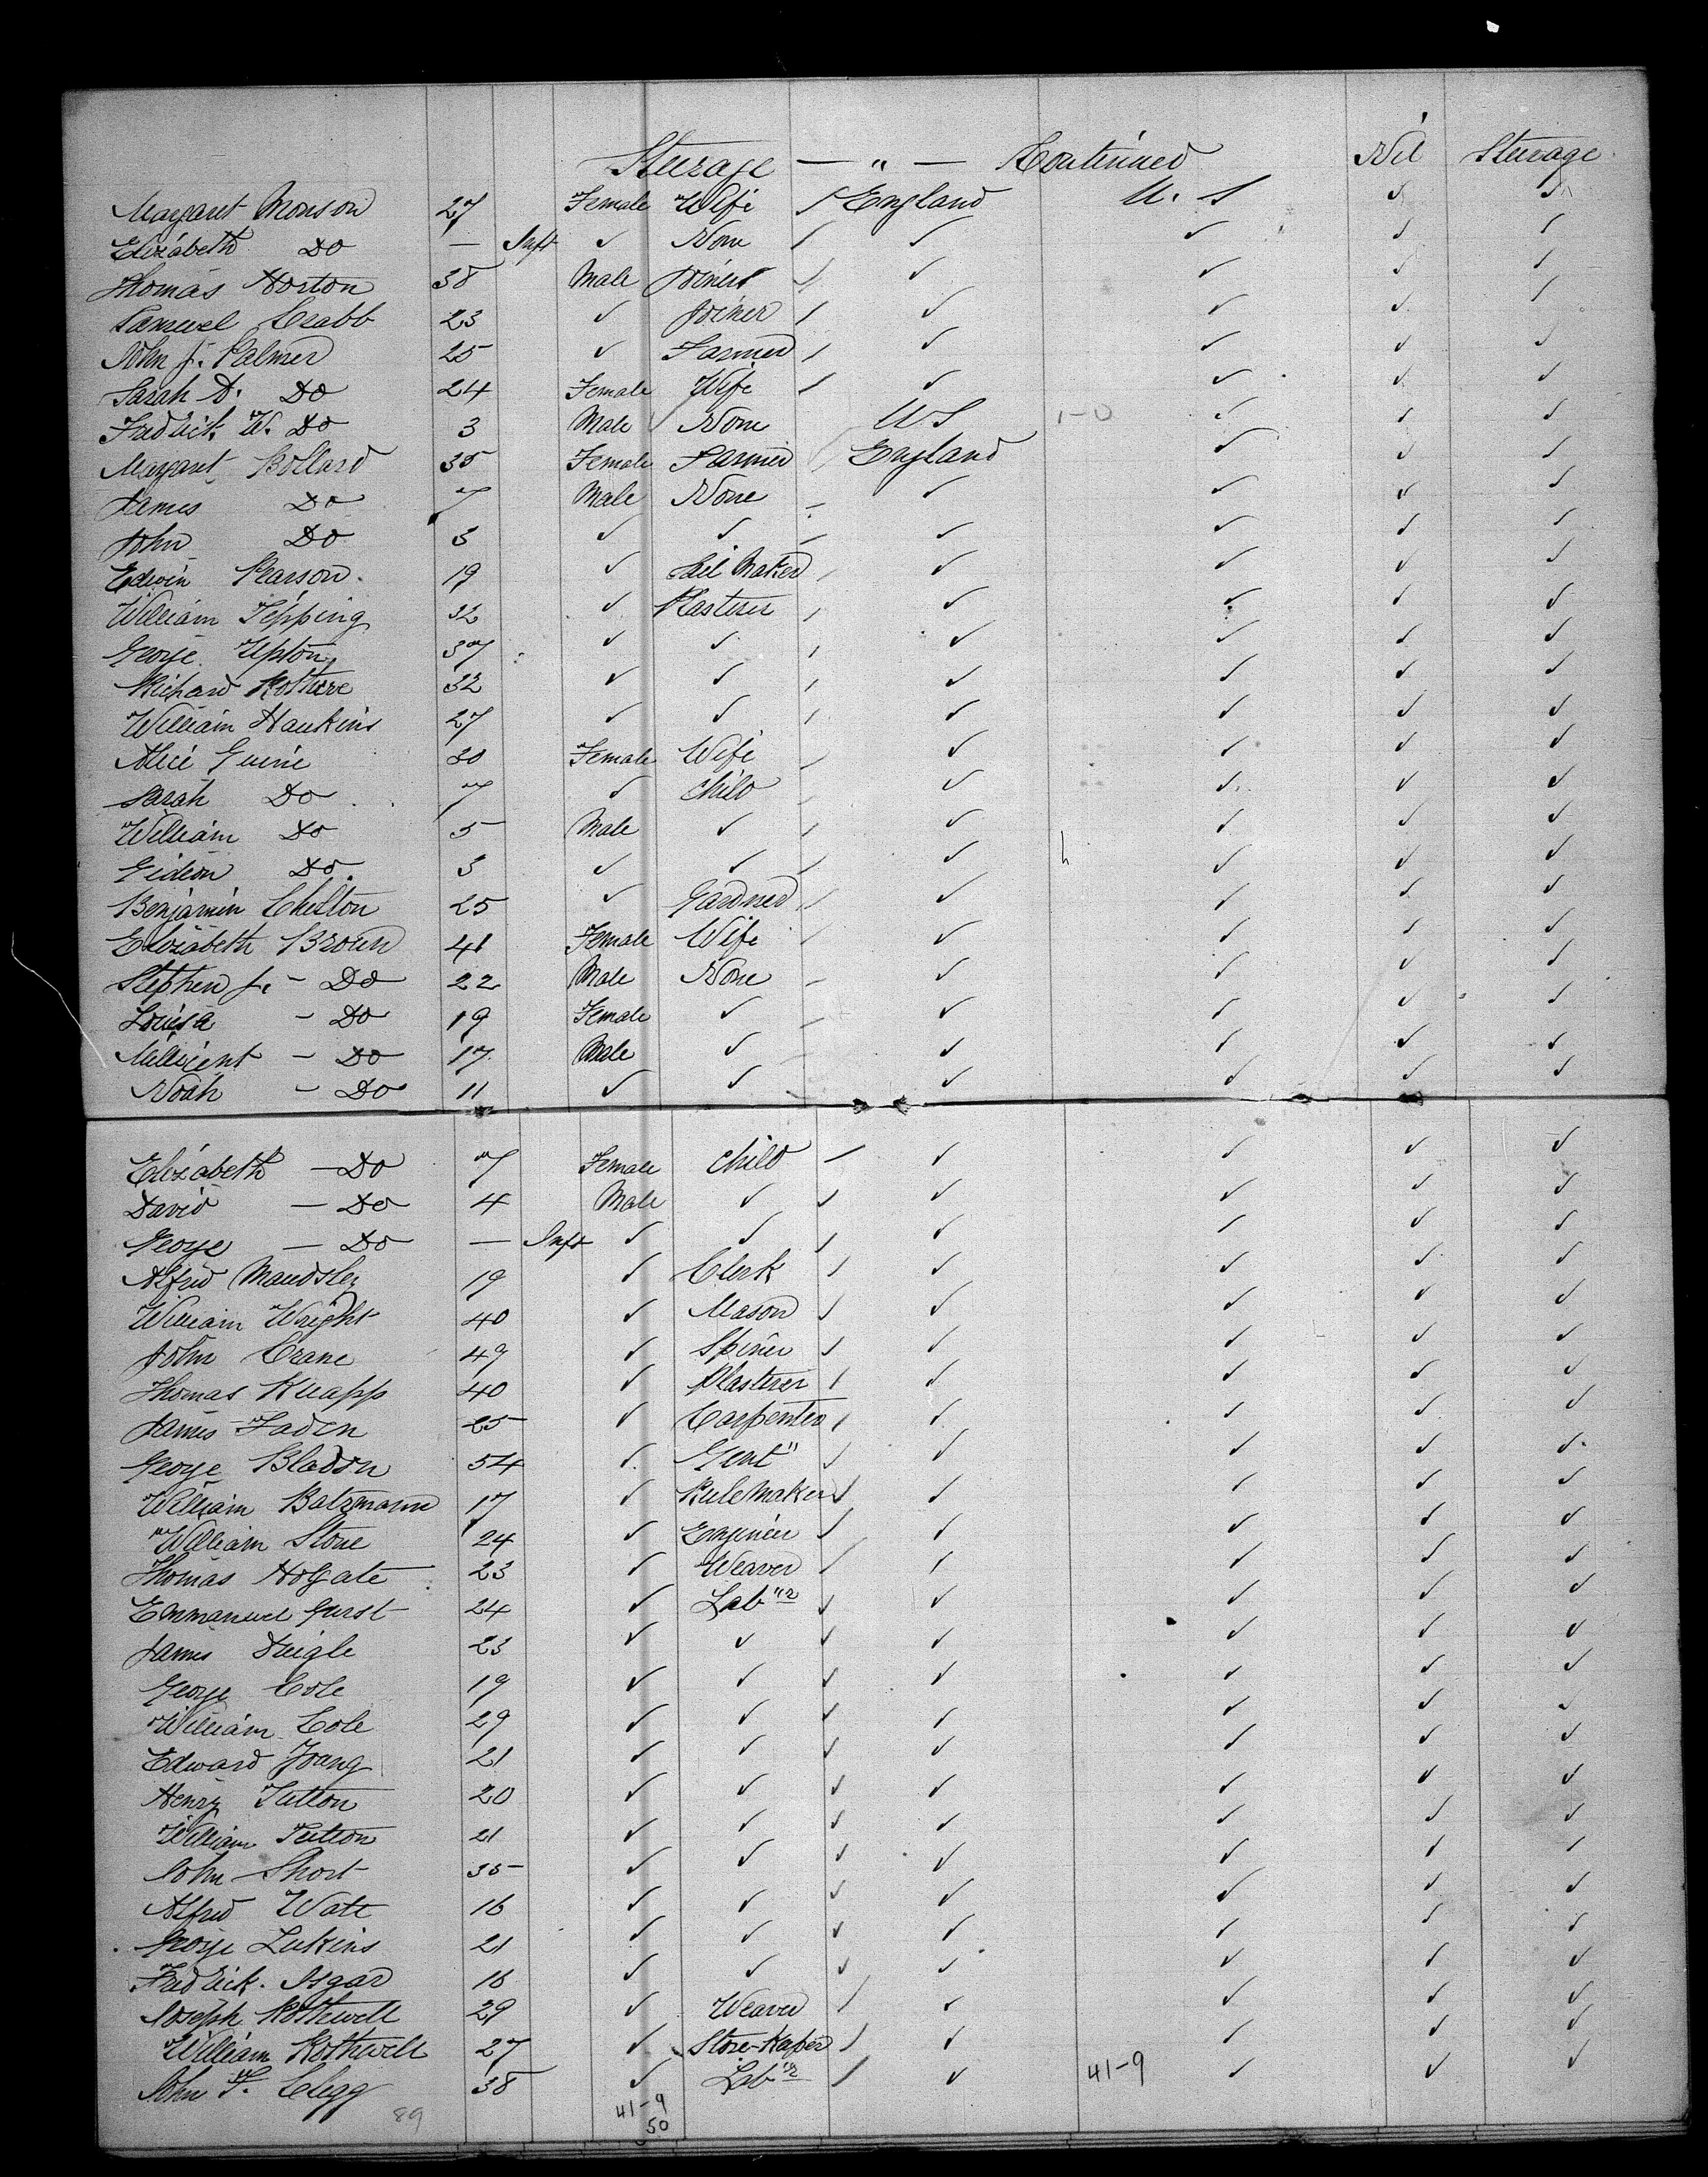 Steerage — " — Continued Nil Steerage
Margaret Monson 27 Female Wife ✓ England U. S ✓ ✓
Elizabeth Do — Inft ✓ None ✓ ✓ ✓ ✓ ✓
Thomas Horton 38 Male Joiner ✓ ✓ ✓ ✓ ✓
Samuel Crabb 23 ✓ Joiner ✓ ✓ ✓ ✓ ✓
John J. Palmer 25 ✓ Farmer ✓ ✓ ✓ ✓ ✓
Sarah A. Do 24 Female Wife ✓ ✓ ✓ ✓ ✓
Fredrick W. Do 3 Male None US 1-0 ✓ ✓ ✓
Margaret Bollard 35 Female Farmer England ✓ ✓ ✓
James Do 7 Male None ✓ ✓ ✓ ✓
John Do 3 ✓ ✓ ✓ ✓ ✓ ✓
Edwin Pearson 19 ✓ Maker ✓ ✓ ✓ ✓ ✓
William Tepping 32 ✓ Plasterer ✓ ✓ ✓ ✓ ✓
George Upton 37 ✓ ✓ ✓ ✓ ✓ ✓ ✓
Richard 32 ✓ ✓ ✓ ✓ ✓ ✓ ✓
William Haukins 27 ✓ ✓ ✓ ✓ ✓ ✓ ✓
Alice 30 Female Wife ✓ ✓ ✓ ✓ ✓
Sarah Do 7 ✓ Child ✓ ✓ ✓ ✓ ✓
William Do 5 Male ✓ ✓ ✓ ✓ ✓ ✓
Gideon Do 3 ✓ ✓ ✓ ✓ h ✓ ✓ ✓
Benjamin Chilton 25 ✓ Gardner ✓ ✓ ✓ ✓ ✓
Elizabeth Broun 41 Female Wife ✓ ✓ ✓ ✓ ✓
Stephen J. - Do 22 Male None ✓ ✓ ✓ ✓ ✓
Louisa - Do 19 Female ✓ ✓ ✓ ✓ ✓ ✓
Millicent - Do 17 Male ✓ ✓ ✓ ✓ ✓
Noah - Do 11 ✓ ✓ ✓ ✓ ✓ ✓
Elizabeth - Do 7 Female Child ✓ ✓ ✓ ✓ ✓
David - Do 4 Male ✓ ✓ ✓ ✓ ✓ ✓
George - Do — Inft ✓ ✓ ✓ ✓ ✓ ✓ ✓
Alfred Maudsley 19 ✓ Clerk ✓ ✓ ✓ ✓ ✓
William Wright 40 ✓ Mason ✓ ✓ ✓ ✓ ✓
John Crane 49 ✓ Spiner ✓ ✓ ✓ ✓ ✓
Thomas Knapp 40 ✓ Plasterer ✓ ✓ ✓ ✓ ✓
James Faden 25 ✓ Carpenter ✓ ✓ ✓ ✓ ✓
George Bladon 54 ✓ Gent" ✓ ✓ ✓ ✓ ✓
William Batzmann 17 ✓ Rule Maker ✓ ✓ ✓ ✓ ✓
William Stone 24 ✓ Engineer ✓ ✓ ✓ ✓ ✓
Thomas Holgate 23 ✓ Weaver ✓ ✓ ✓ ✓ ✓
Emmanuel 24 ✓ Lab"r ✓ ✓ ✓ ✓ ✓
James 23 ✓ ✓ ✓ ✓ ✓ ✓ ✓
George Cole 19 ✓ ✓ ✓ ✓ ✓ ✓ ✓
William Cole 29 ✓ ✓ ✓ ✓ ✓ ✓ ✓
Edward Young 21 ✓ ✓ ✓ ✓ ✓ ✓ ✓
Henry Tutton 20 ✓ ✓ ✓ ✓ ✓ ✓ ✓
William Tutton 21 ✓ ✓ ✓ ✓ ✓ ✓ ✓
John Short 35 ✓ ✓ ✓ ✓ ✓ ✓ ✓
Alfred Wate 16 ✓ ✓ ✓ ✓ ✓ ✓ ✓
George Lukins 21 ✓ ✓ ✓ ✓ ✓ ✓ ✓
Fredrick Asgar 16 ✓ ✓ ✓ ✓ ✓ ✓ ✓
Joseph Rothwell 29 ✓ Weaver ✓ ✓ ✓ ✓ ✓
William Rothwell 27 ✓ Store-Keeper ✓ ✓ ✓ ✓ ✓
John T. Clegg 38 ✓ Lab"r ✓ ✓ 41-9 ✓ ✓ ✓
89 41-9
50